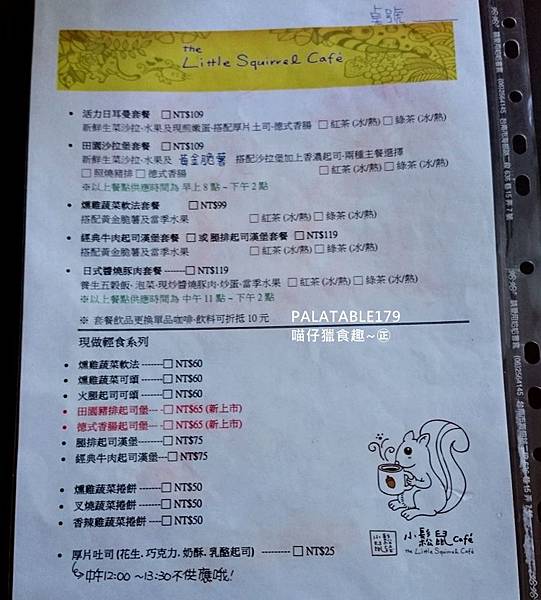 桌號
the
Little Squirrel Café
• 活力日耳曼套餐 □NT$109
新鮮生菜沙拉‧水果及現煎嫩蛋‧搭配厚片土司‧德式香腸 □紅茶 (冰/熱) □綠茶 (冰/熱)
• 田園沙拉堡套餐 □NT$109
新鮮生菜沙拉‧水果及 黃金脆薯 搭配沙拉堡加上香濃起司‧兩種主餐選擇
□照燒豬排 □德式香腸 □紅茶 (冰/熱) □綠茶 (冰/熱)
※以上餐點供應時間為 早上8點~下午2點
• 燻雞蔬菜軟法套餐 □NT$99
搭配黃金脆薯及當季水果 □紅茶 (冰/熱) □綠茶 (冰/熱)
• 經典牛肉起司漢堡套餐 □ 或腿排起司漢堡套餐 □NT$119
搭配黃金脆薯及當季水果 □紅茶 (冰/熱) □綠茶 (冰/熱)
• 日式醬燒豚肉套餐 -------□NT$119
養生五穀飯‧泡菜‧現炒醬燒豚肉‧炒蛋‧當季水果 □紅茶 (冰/熱) □綠茶 (冰/熱)
※以上餐點供應時間為 中午11點~下午2點
※ 套餐飲品更換單品咖啡‧飲料可折抵10元
PALATABLE179
喵仔獵食趣~㊣
現做輕食系列
• 燻雞蔬菜軟法 -------□ NT$60
• 燻雞蔬菜可頌 -------□ NT$60
• 火腿起司可頌 -------□ NT$60
• 田園豬排起司堡--- -□ NT$65 (新上市)
• 德式香腸起司堡--- -□ NT$65 (新上市)
• 腿排起司漢堡-------□ NT$75
• 經典牛肉起司漢堡---□ NT$75
• 燻雞蔬菜捲餅 -------□ NT$50
• 叉燒蔬菜捲餅 -------□ NT$50
• 香辣雞蔬菜捲餅 ----□ NT$50
小鬆鼠
小鬆鼠Café
the Little Squirrel Café
• 厚片吐司(花生‧巧克力‧奶酥‧乳酪起司) ---------□ NT$25
中午12:00~13:30不供應哦!